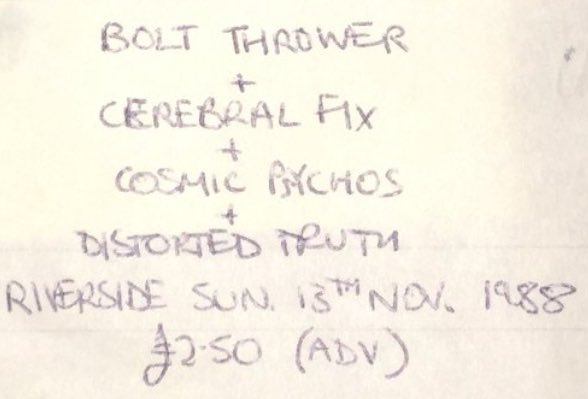 BOLT THROWER
+
CEREBRAL FIX
+
COSMIC PSYCHOS
+
DISTORTED TRUTH
RIVERSIDE SUN. 13TH NOV. 1988
£2.50 (ADV)